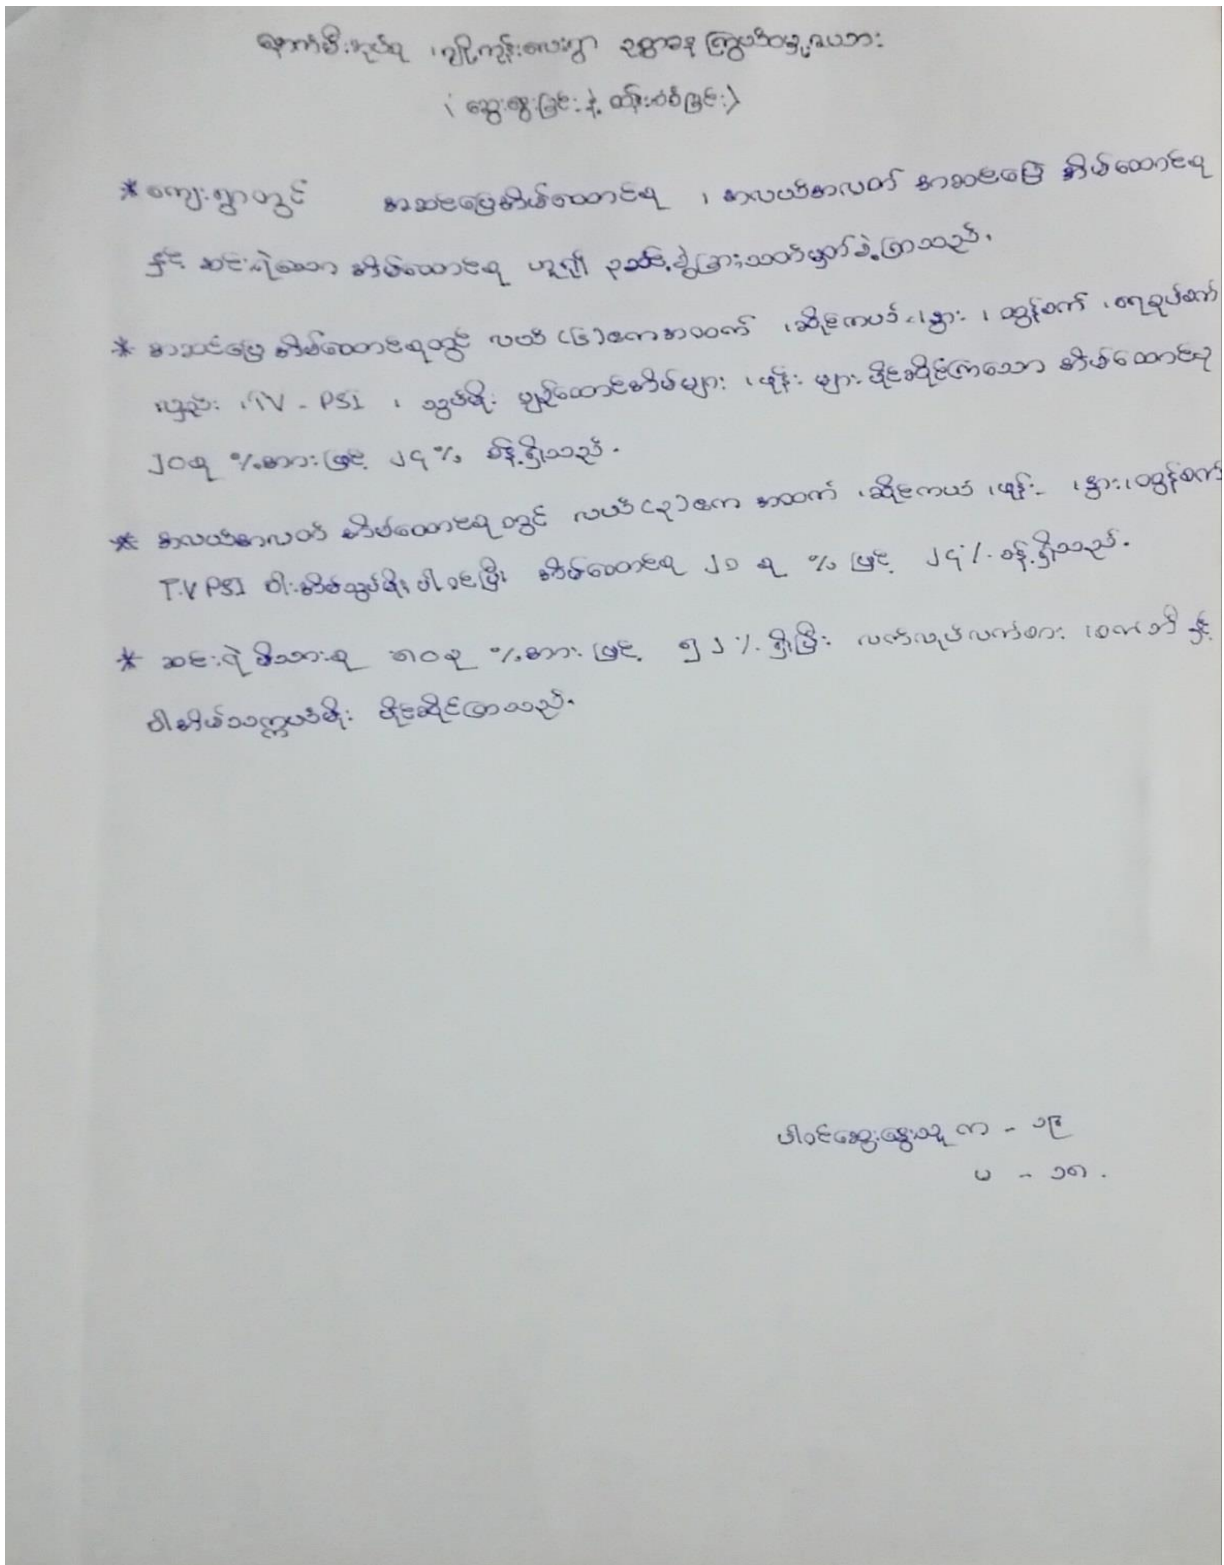 ကျိုကုန်းလေးရွာ ဥစ္စာဓန ကြွယ်ဝမှုဇယား
(ဆွေးနွေးခြင်းနဲ့ ထိုးစစ်ခြင်း)
* ကျေးရွာတွင် အဆင်ပြေအိမ်ထောင်စု ၊ အလယ်အလတ် အဆင်ပြေ အိမ်ထောင်စု
နှင့် ဆင်းရဲသော အိမ်ထောင်စု ဟူ၍ ခွဲခြားသတ်မှတ်ခဲ့ကြသည်.
* အဆင်ပြေ အိမ်ထောင်စုတွင် လယ် (၆)ဧကအထက် ၊ဆိုင်ကယ် ၊နွား ၊ ထွန်စက် ၊ရေစုပ်စက်
လှည်း ၊TV - PSI ၊ သွပ်မိုး ပျဉ်ထောင်အိမ်များ ၊ဖုန်း များ ပိုင်ဆိုင်ကြသော အိမ်ထောင်စု
၂၀စု %အားဖြင့် ၂၄% ခန့်ရှိသည်.
* အလယ်အလတ် အိမ်ထောင်စုတွင် လယ်(၃)ဧက အထက် ၊ဆိုင်ကယ် ၊ဖုန်း ၊နွား၊ထွန်စက်
T.V PSI ဝါးအိမ်သွပ်မိုး ပါဝင်ပြီး အိမ်ထောင်စု ၂၁ စု % ဖြင့် ၂၄%. ခန့်ရှိသည်.
* ဆင်းရဲ မိသားစု ၈၀စု %အား ဖြင့် ၅၂%. ရှိပြီး လက်လုပ်လက်စား ၊စက်ဘီး နှင့်
ဝါးအိမ်သက္ကယ်မိုး ပိုင်ဆိုင်ကြသည်.
ပါဝင်ဆွေးနွေးသူ က - ၁၉
မ - ၁၈ .